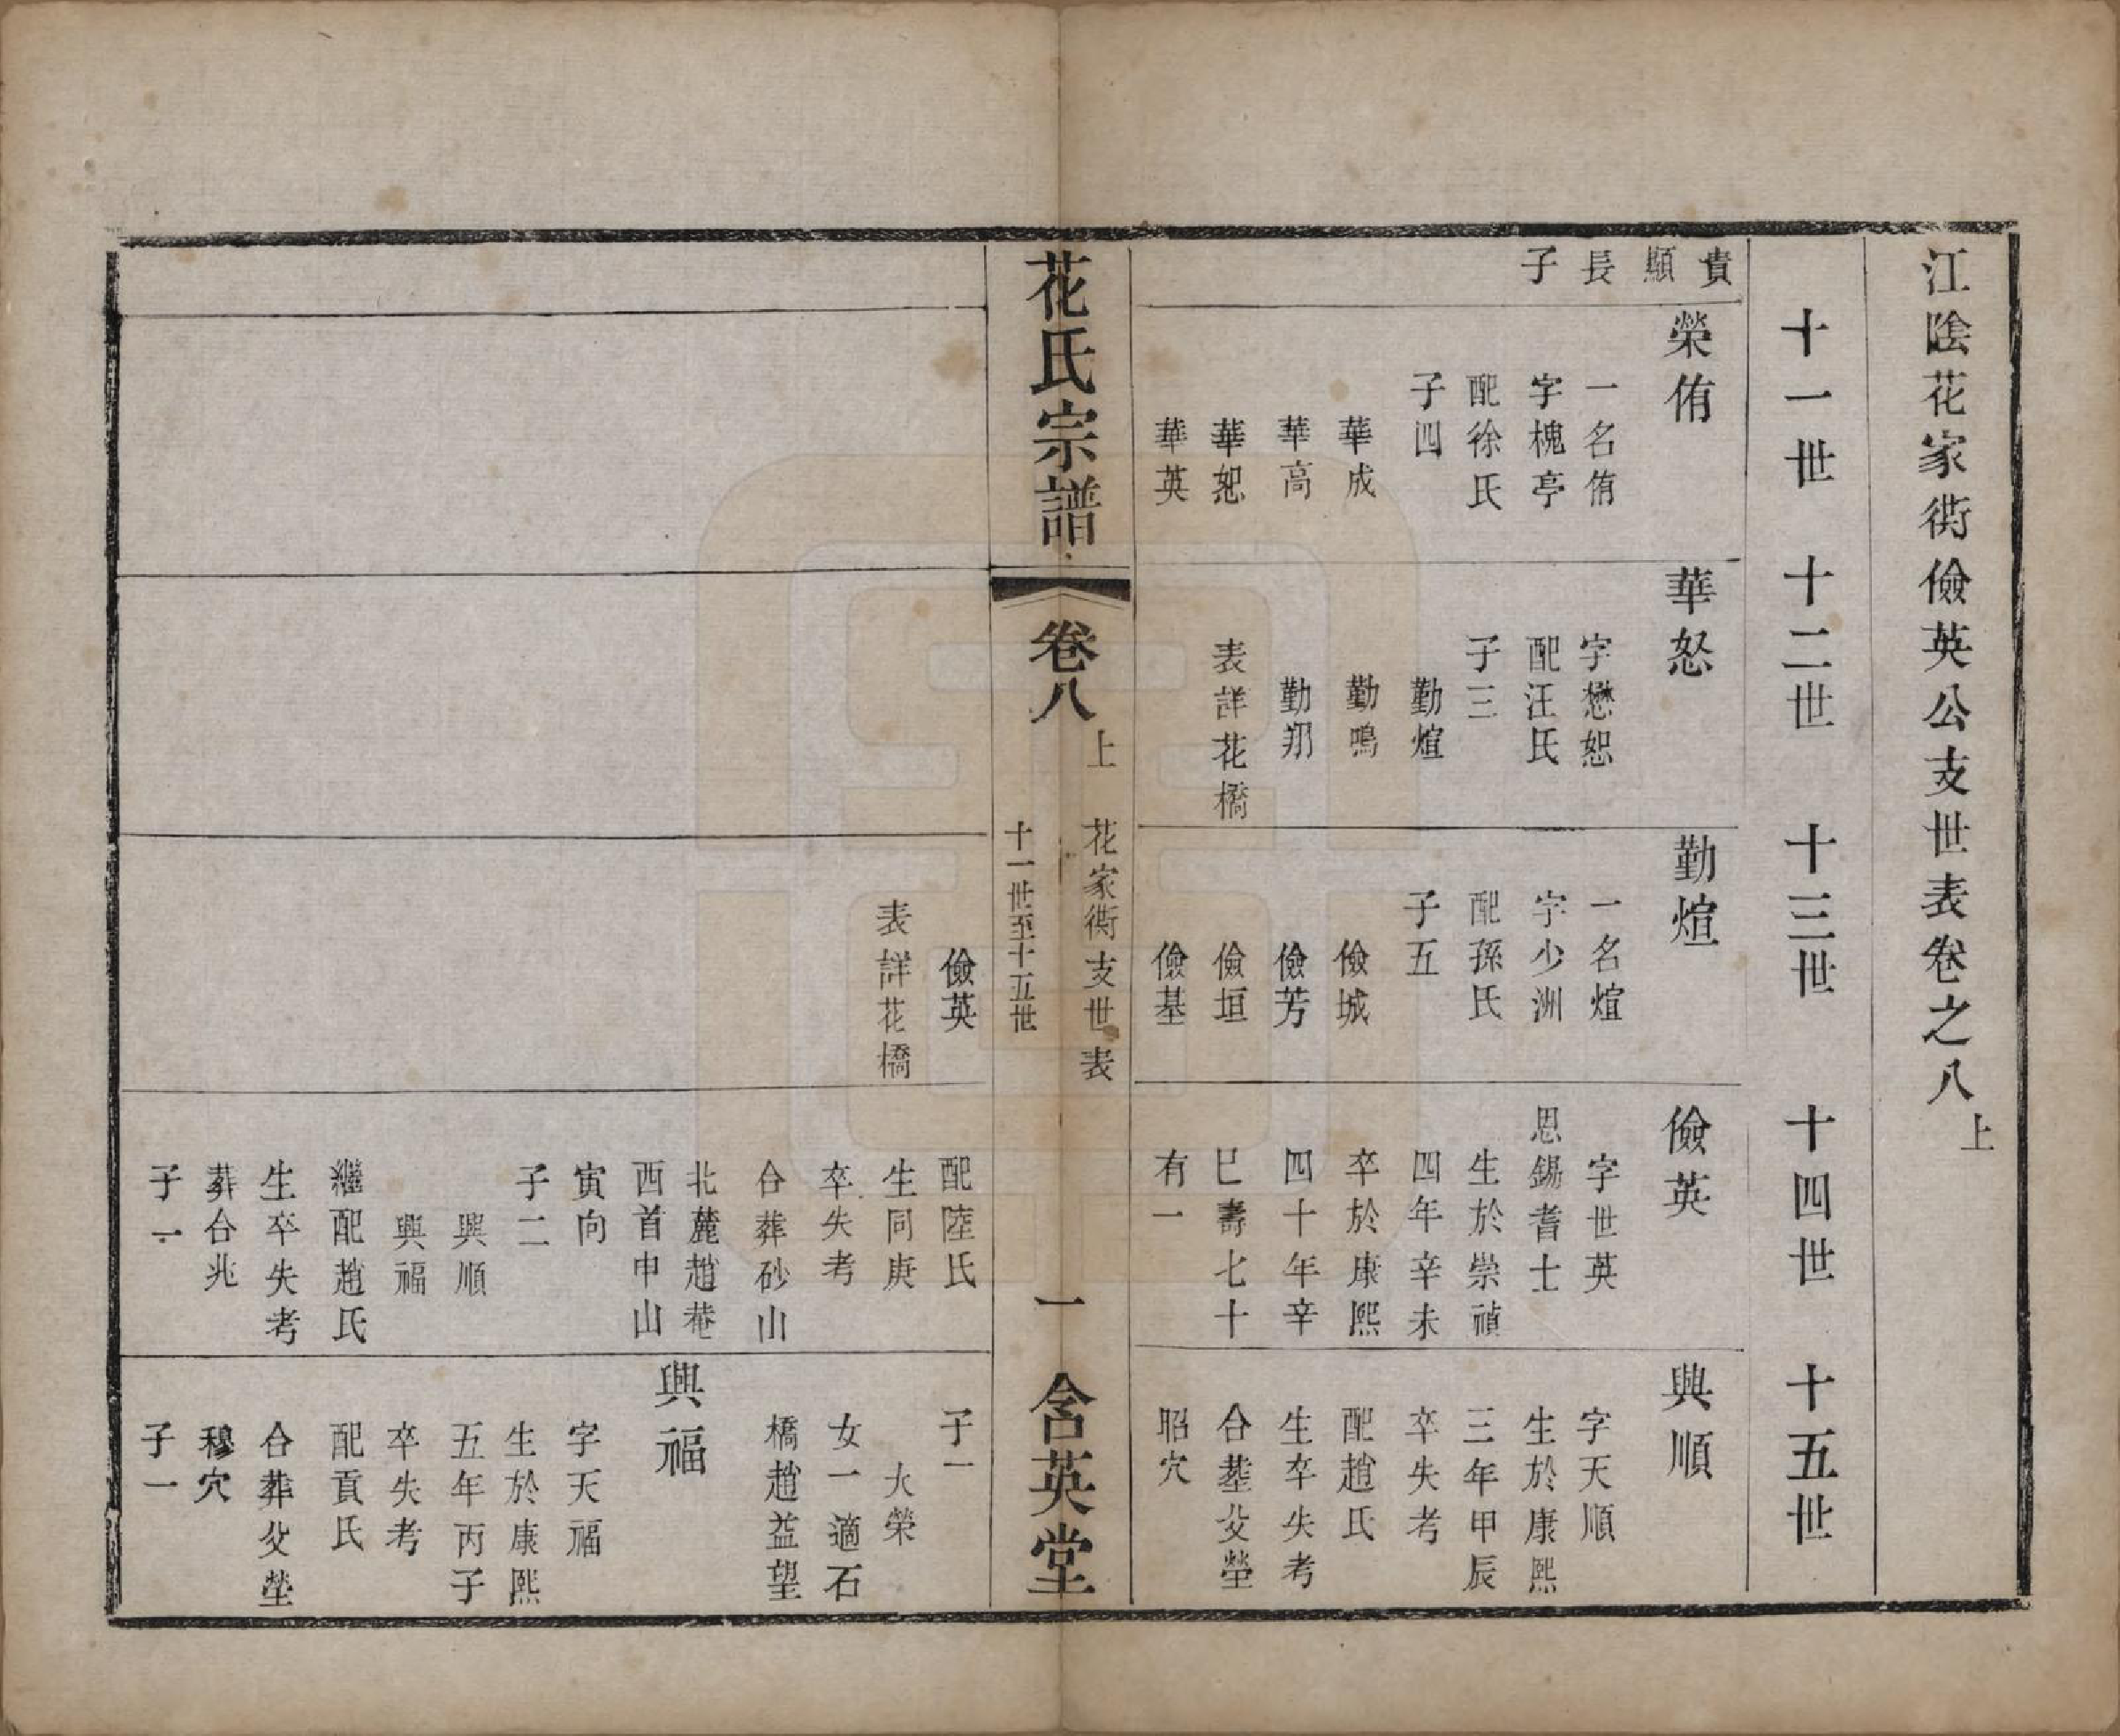 江陰花家衖儉英公支世表卷之八上
十一世
十二世
十三世
十四世
十五世
貴
顯
長
子
榮侑
一名侑
字槐亭
配徐氏
子四
華成
華高
華恕
華英
華怒
字懋恕
配汪氏
子三
勤煊
勤鳴
勤翔
表詳花橋
勤煊
一名煊
字少洲
配孫氏
子五
儉城
儉芳
儉垣
儉基
儉英
字世英
恩錫耆士
生於崇禎
四年辛未
卒於康熙
四十年辛
巳壽七十
有一
興順
字天順
生於康熙
三年甲辰
卒失考
配趙氏
生卒失考
合塟父塋
昭穴
花氏宗譜
卷八上
花家衖支世表
十一世至十五世
一
含英堂
儉英
表詳花橋
配陸氏
生同庚
卒失考
合葬砂山
北麓趙菴
西首申山
寅向
子二
興順
興福
繼配趙氏
生卒失考
葬合兆
子一
子一
大榮
女一適石
橋趙益望
興福
字天福
生於康熙
五年丙子
卒失考
配貢氏
合葬父塋
穆穴
子一